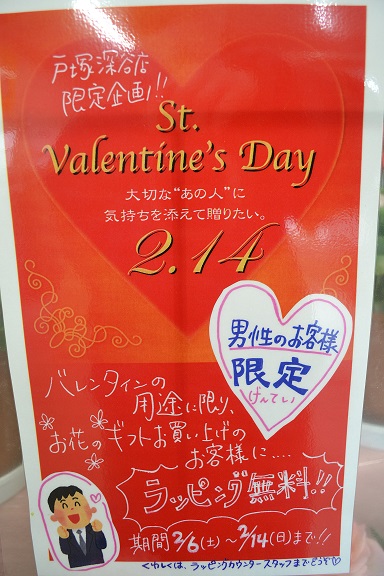 戸塚深谷店
限定企画!!
St.
Valentine's Day
大切な“あの人”に
気持ちを添えて贈りたい。
2.14
男性のお客様
限定
げんてい
バレンタインの
用途に限り、
お花のギフトお買い上げの
お客様に....
ラッピング無料!!
期間 2/6(土)～2/14(日)まで!!
くわしくは、ラッピングカウンタースタッフまでどうぞ♡